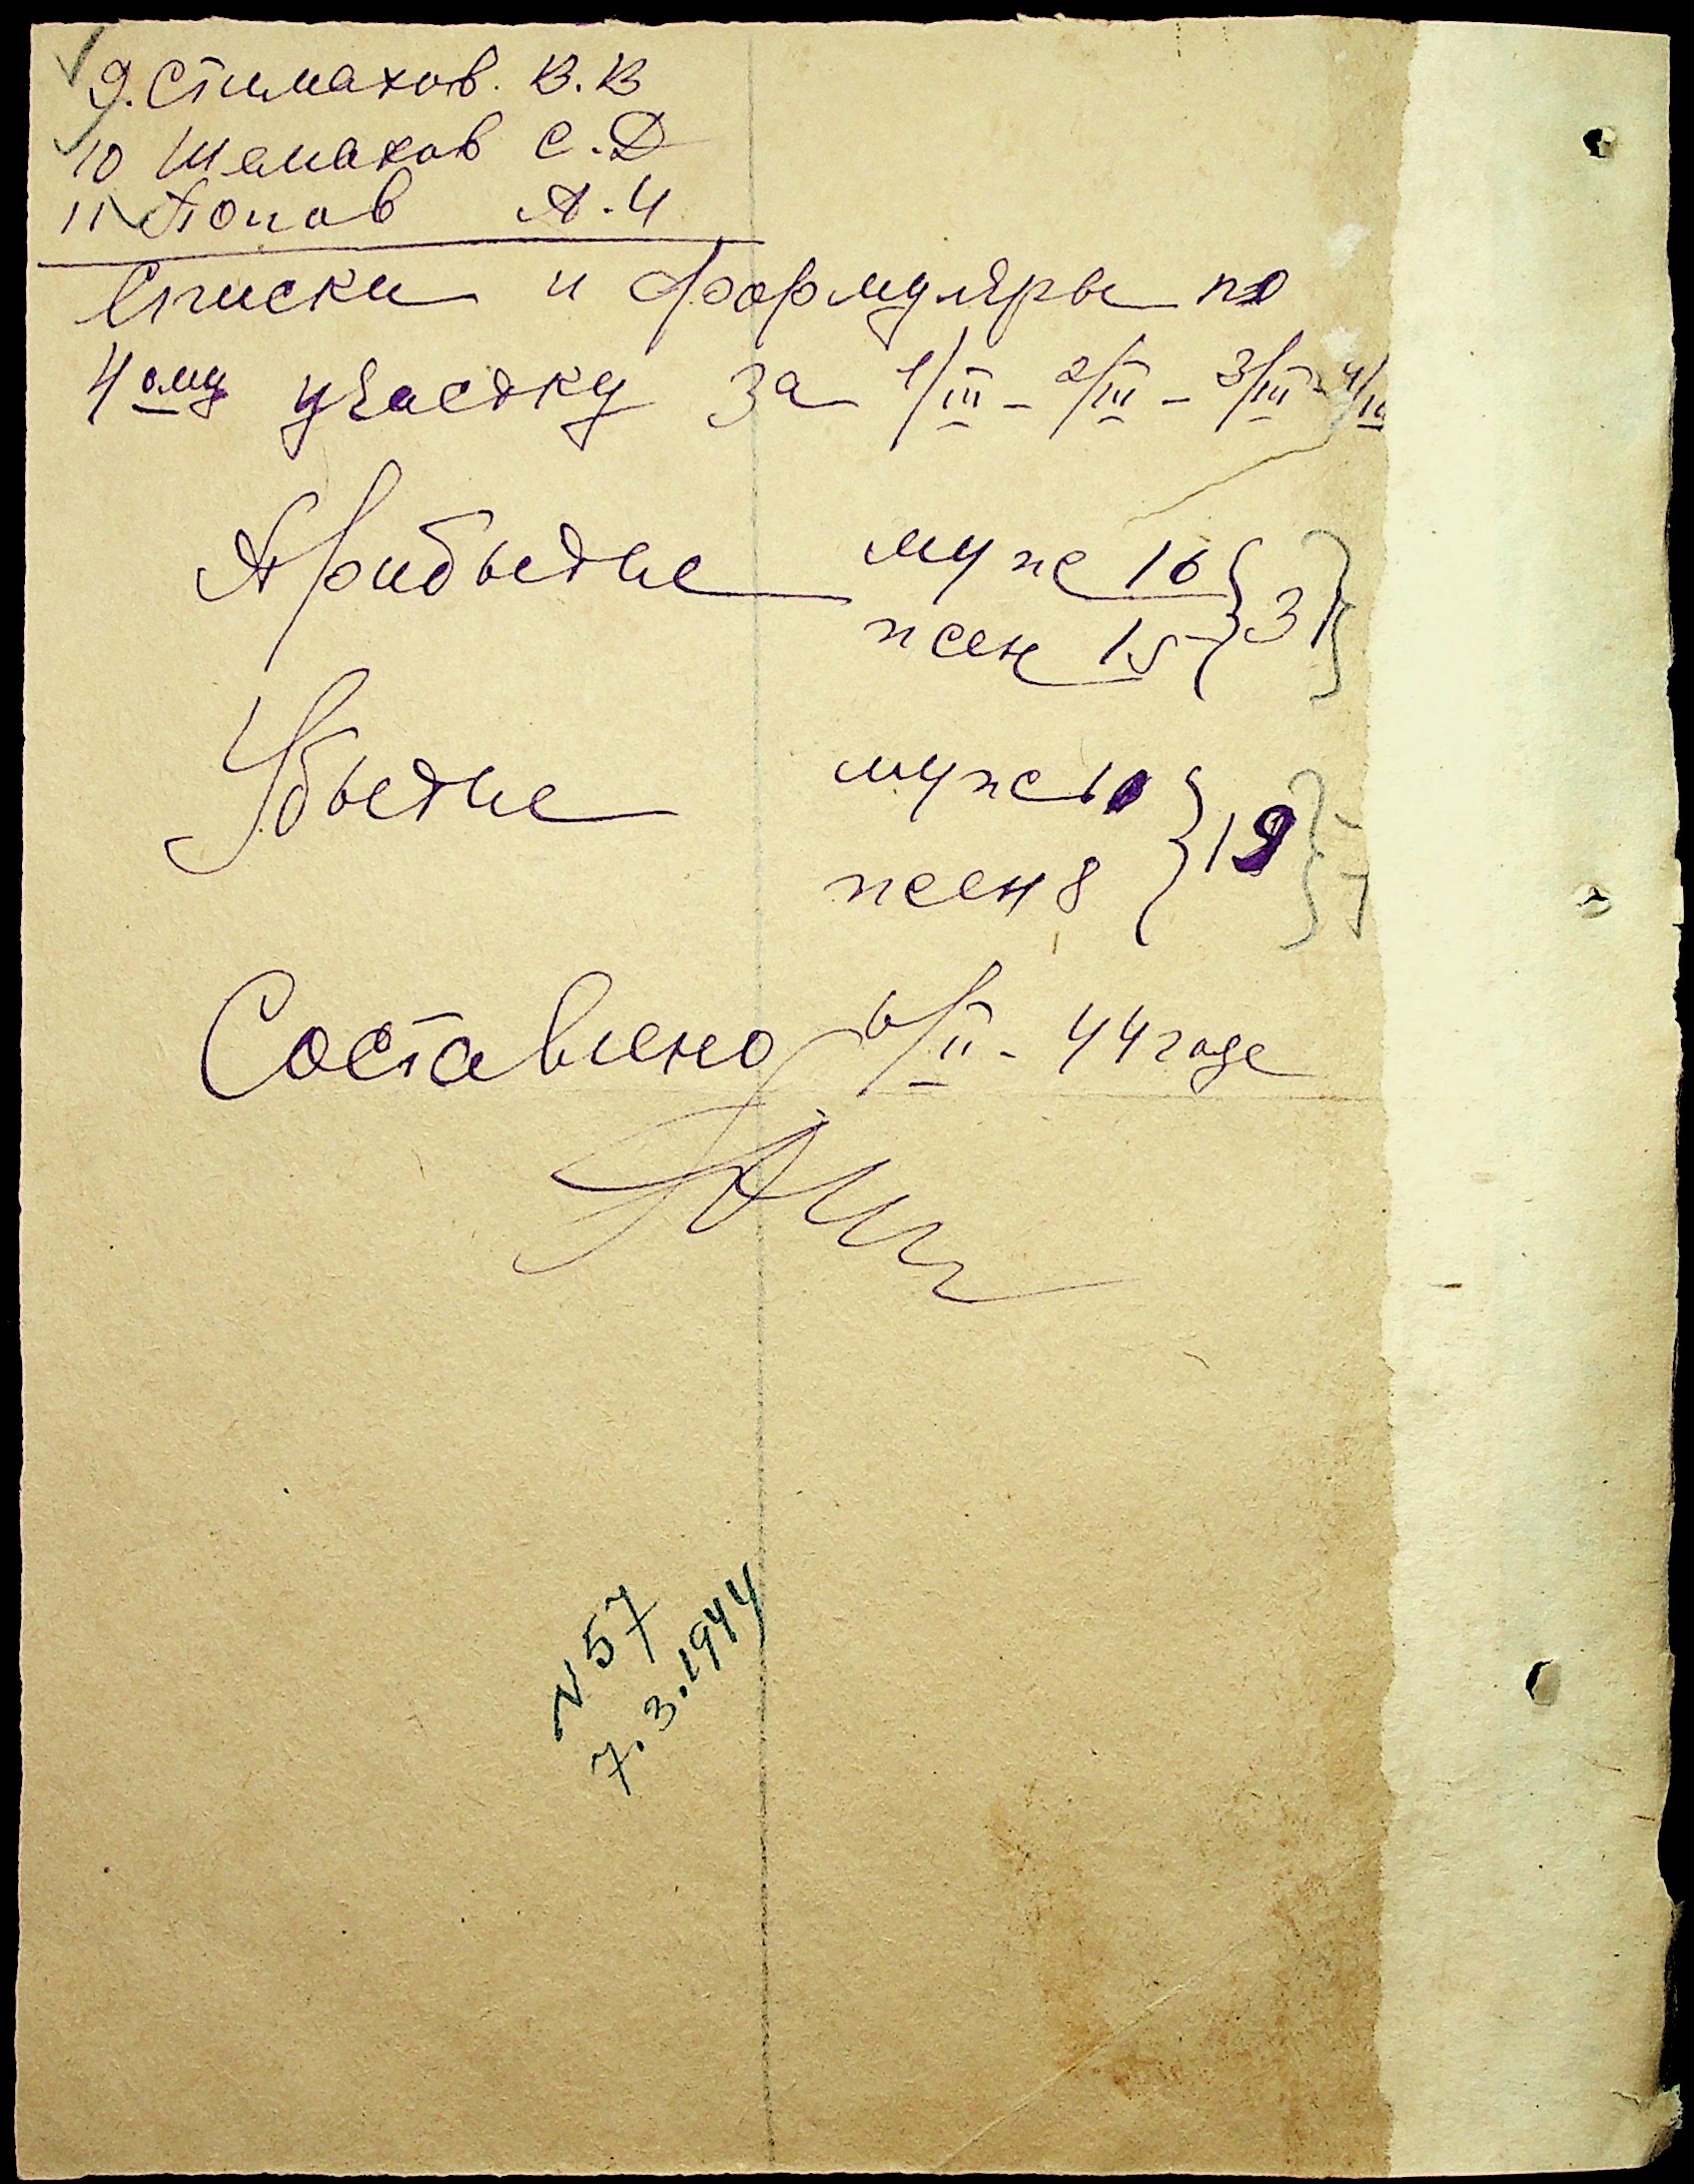 9. Стимахов. В.В
10 Шемахов С.Д
11 Попов А.И
Списки и формуляры по
4ому участку за 1/III - 2/III - 3/III - 4/III
Прибытие муж 16 } 31 }
жен 15
Убытие муж 11 } 19 }
жен 8
Составлено 6/II - 44 года
N 57
7.3.1944